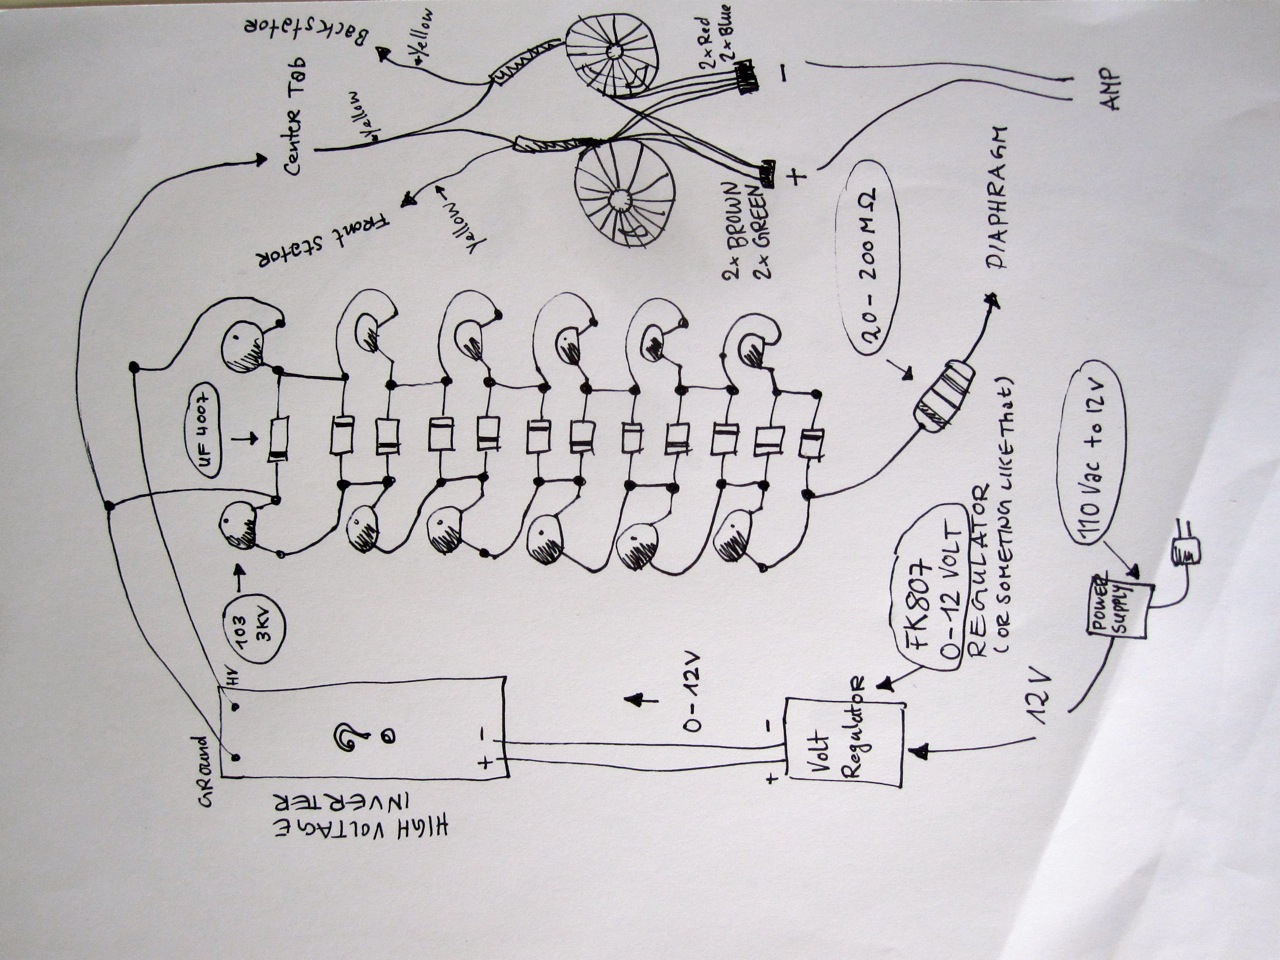 Backstator
+Yellow
Center Tab
+Yellow
Yellow→
Front stator
2x Red
2x Blue
-
+
AMP
2x BROWN
2x GREEN
20 - 200 MΩ
DIAPHRAGM
UF 4007
103
3KV
HV
GROUND
?
-
+
HIGH VOLTAGE
INVERTER
0-12V
-
+
Volt
Regulator
FK807
0-12 VOLT
REGULATOR
(OR SOMETING LIKE That)
12V
POWER
SUPPLY
110 Vac to 12V